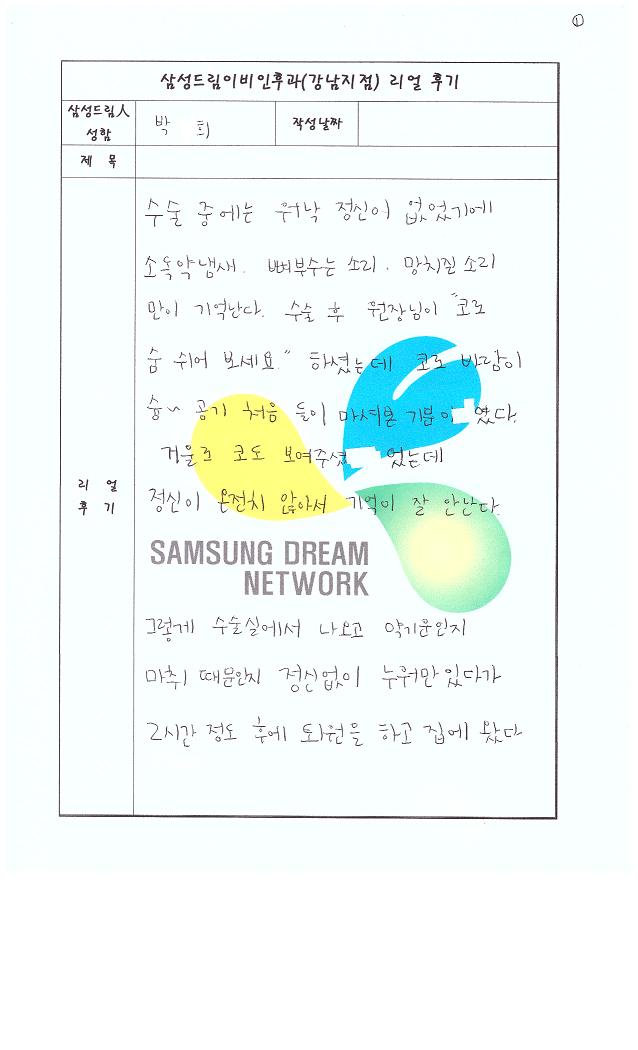 ①
삼성드림이비인후과(강남지점) 리얼 후기
삼성드림人 성함
박 희
작성날짜
제 목
리 얼 후 기
수술 중에는 워낙 정신이 없었기에
소독약냄새. 뼈부수는 소리. 망치질 소리
만이 기억난다. 수술 후 원장님이 "코로
숨 쉬어 보세요." 하셨는데 코로 바람이
슝~ 공기 처음 들이 마셔본 기분이 였다.
거울로 코도 보여주셨 었는데
정신이 온전치 않아서 기억이 잘 안난다.
SAMSUNG DREAM
NETWORK
그렇게 수술실에서 나오고 약기운인지
마취 때문인지 정신없이 누워만있다가
2시간 정도 후에 퇴원을 하고 집에 왔다